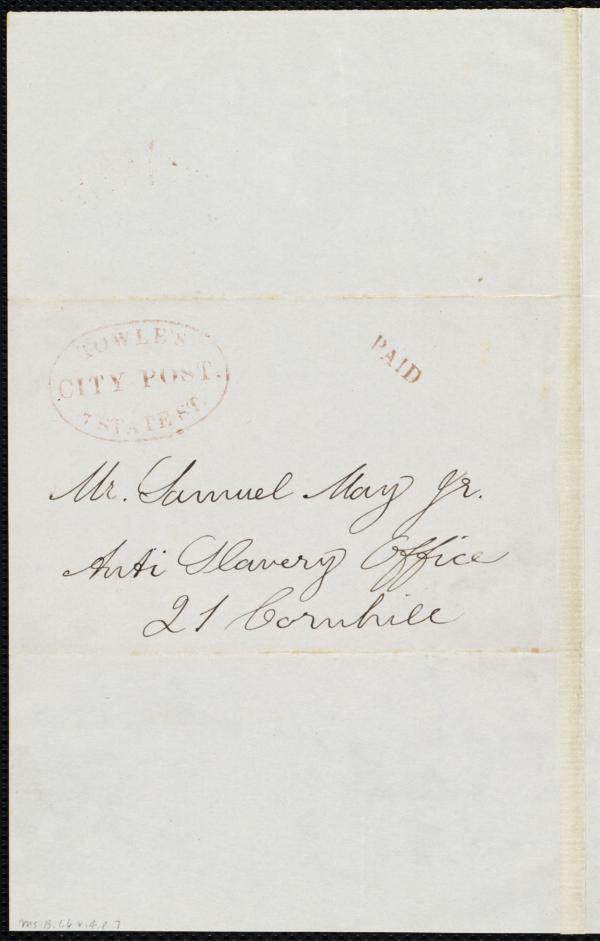 TOWLE'S
CITY POST.
7 STATE ST.
PAID
Mr. Samuel May Jr.
Anti Slavery Office
21 Cornhill
Ms. B. 1.6 v. 4, p. 7